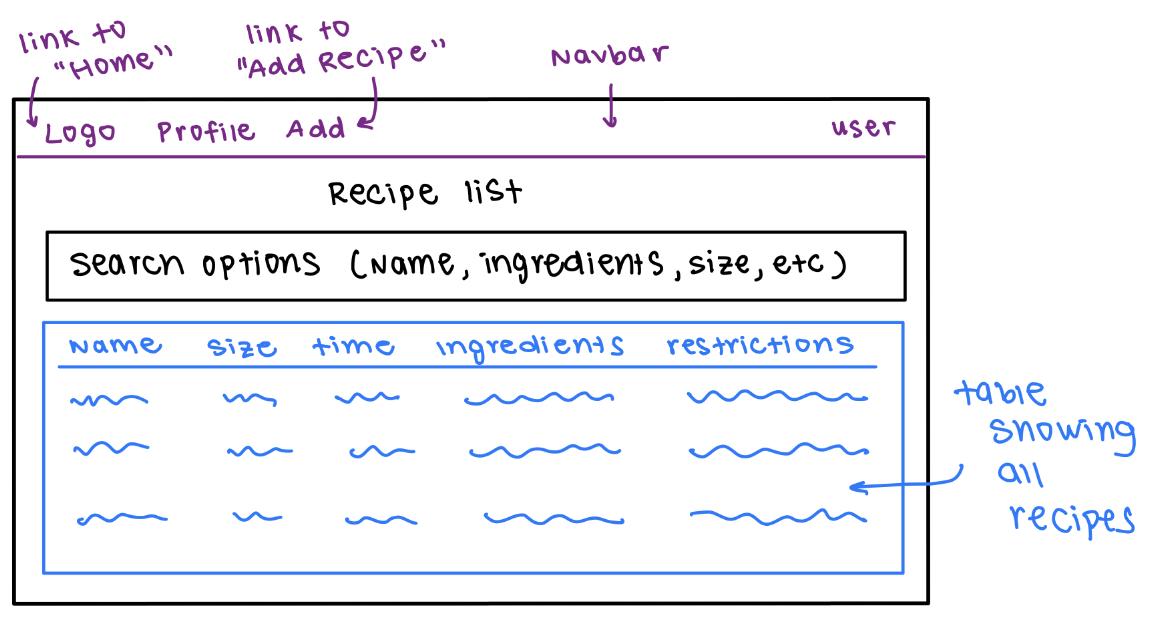 link to
"Home"
link to
"Add Recipe"
Navbar
Logo Profile Add user
Recipe list
Search options (Name, ingredients, size, etc)
Name size time ingredients restrictions
table
showing
all
recipes